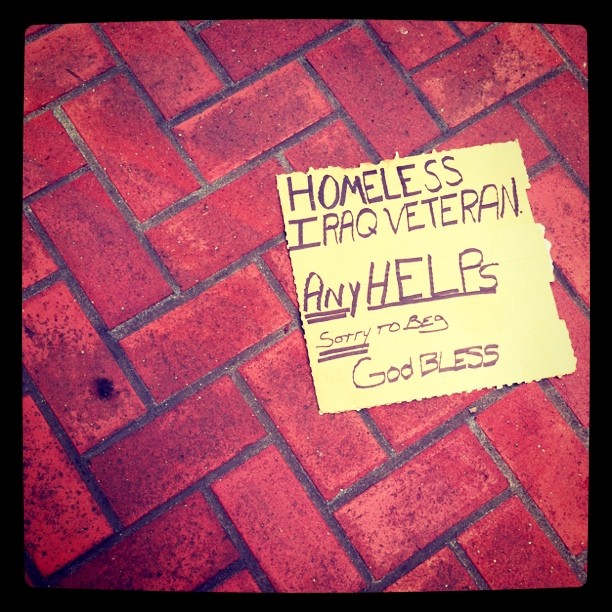 HOMELESS
IRAQ VETERAN.
ANy HELPS
SORRY TO BEg
GOd BLESS